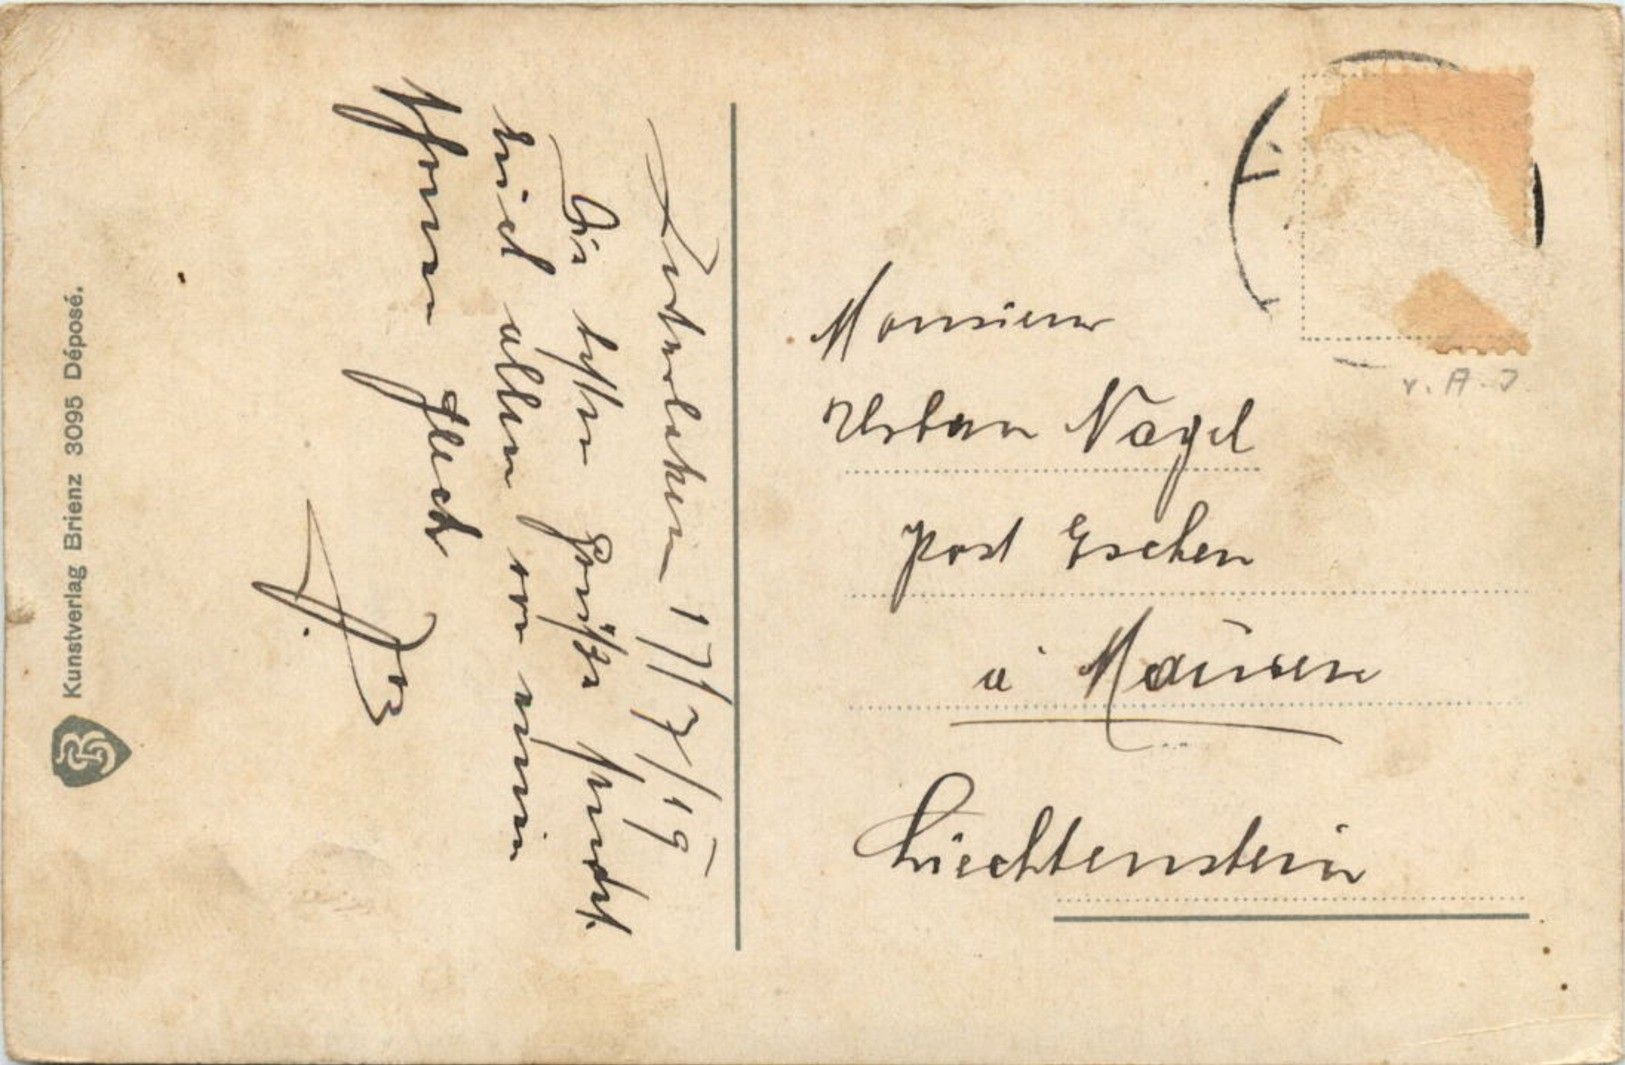 Interlaken 17/7/19
Die besten Grüsse sendet
euch allen von mein

Monsieur
Urban Nagel
Post Eschen
à Mauren
Liechtenstein
Kunstverlag Brienz 3095 Déposé.